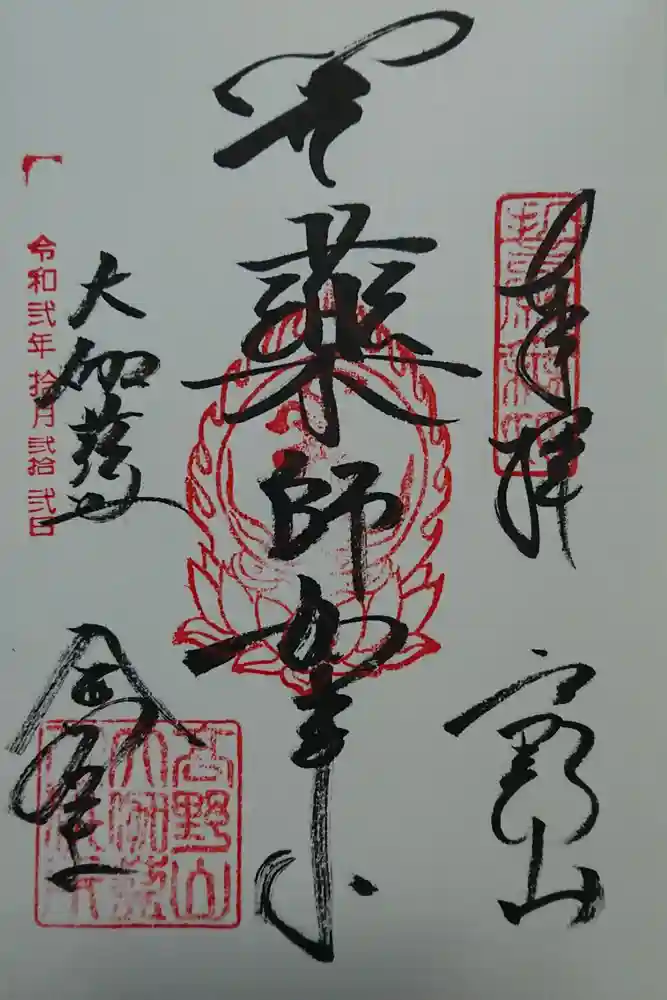 奉拝
高野山
薬師如来
大伽藍
金堂
令和弐年 拾月 弐拾弐日
高野山
大伽藍